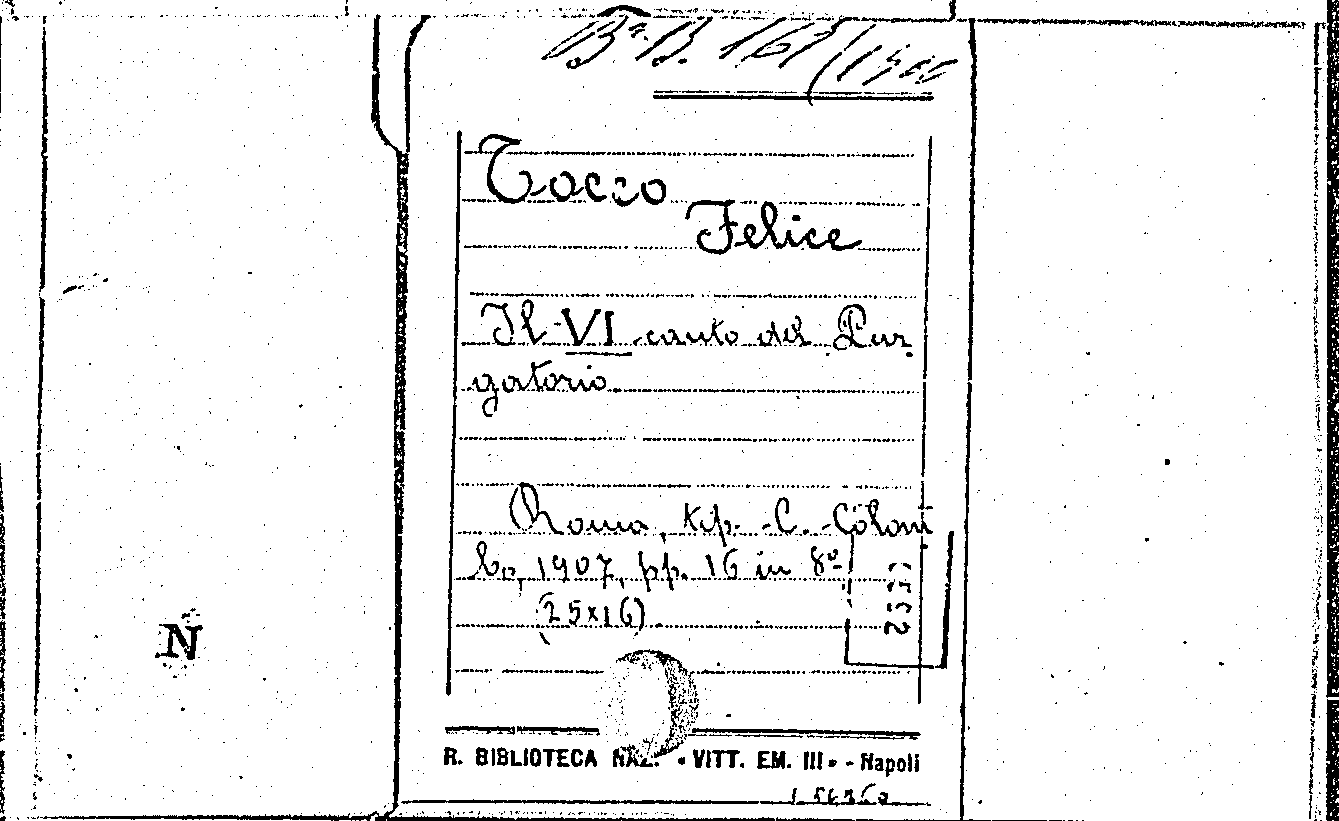 Bª. B. 167/1
Tocco
Felice
Il VI canto del Pur
gatorio.
Roma, tip. C. Colom
bo, 1907, pp. 16 in 8º
(25x16).
N
R. BIBLIOTECA NAZ. « VITT. EM. III » - Napoli